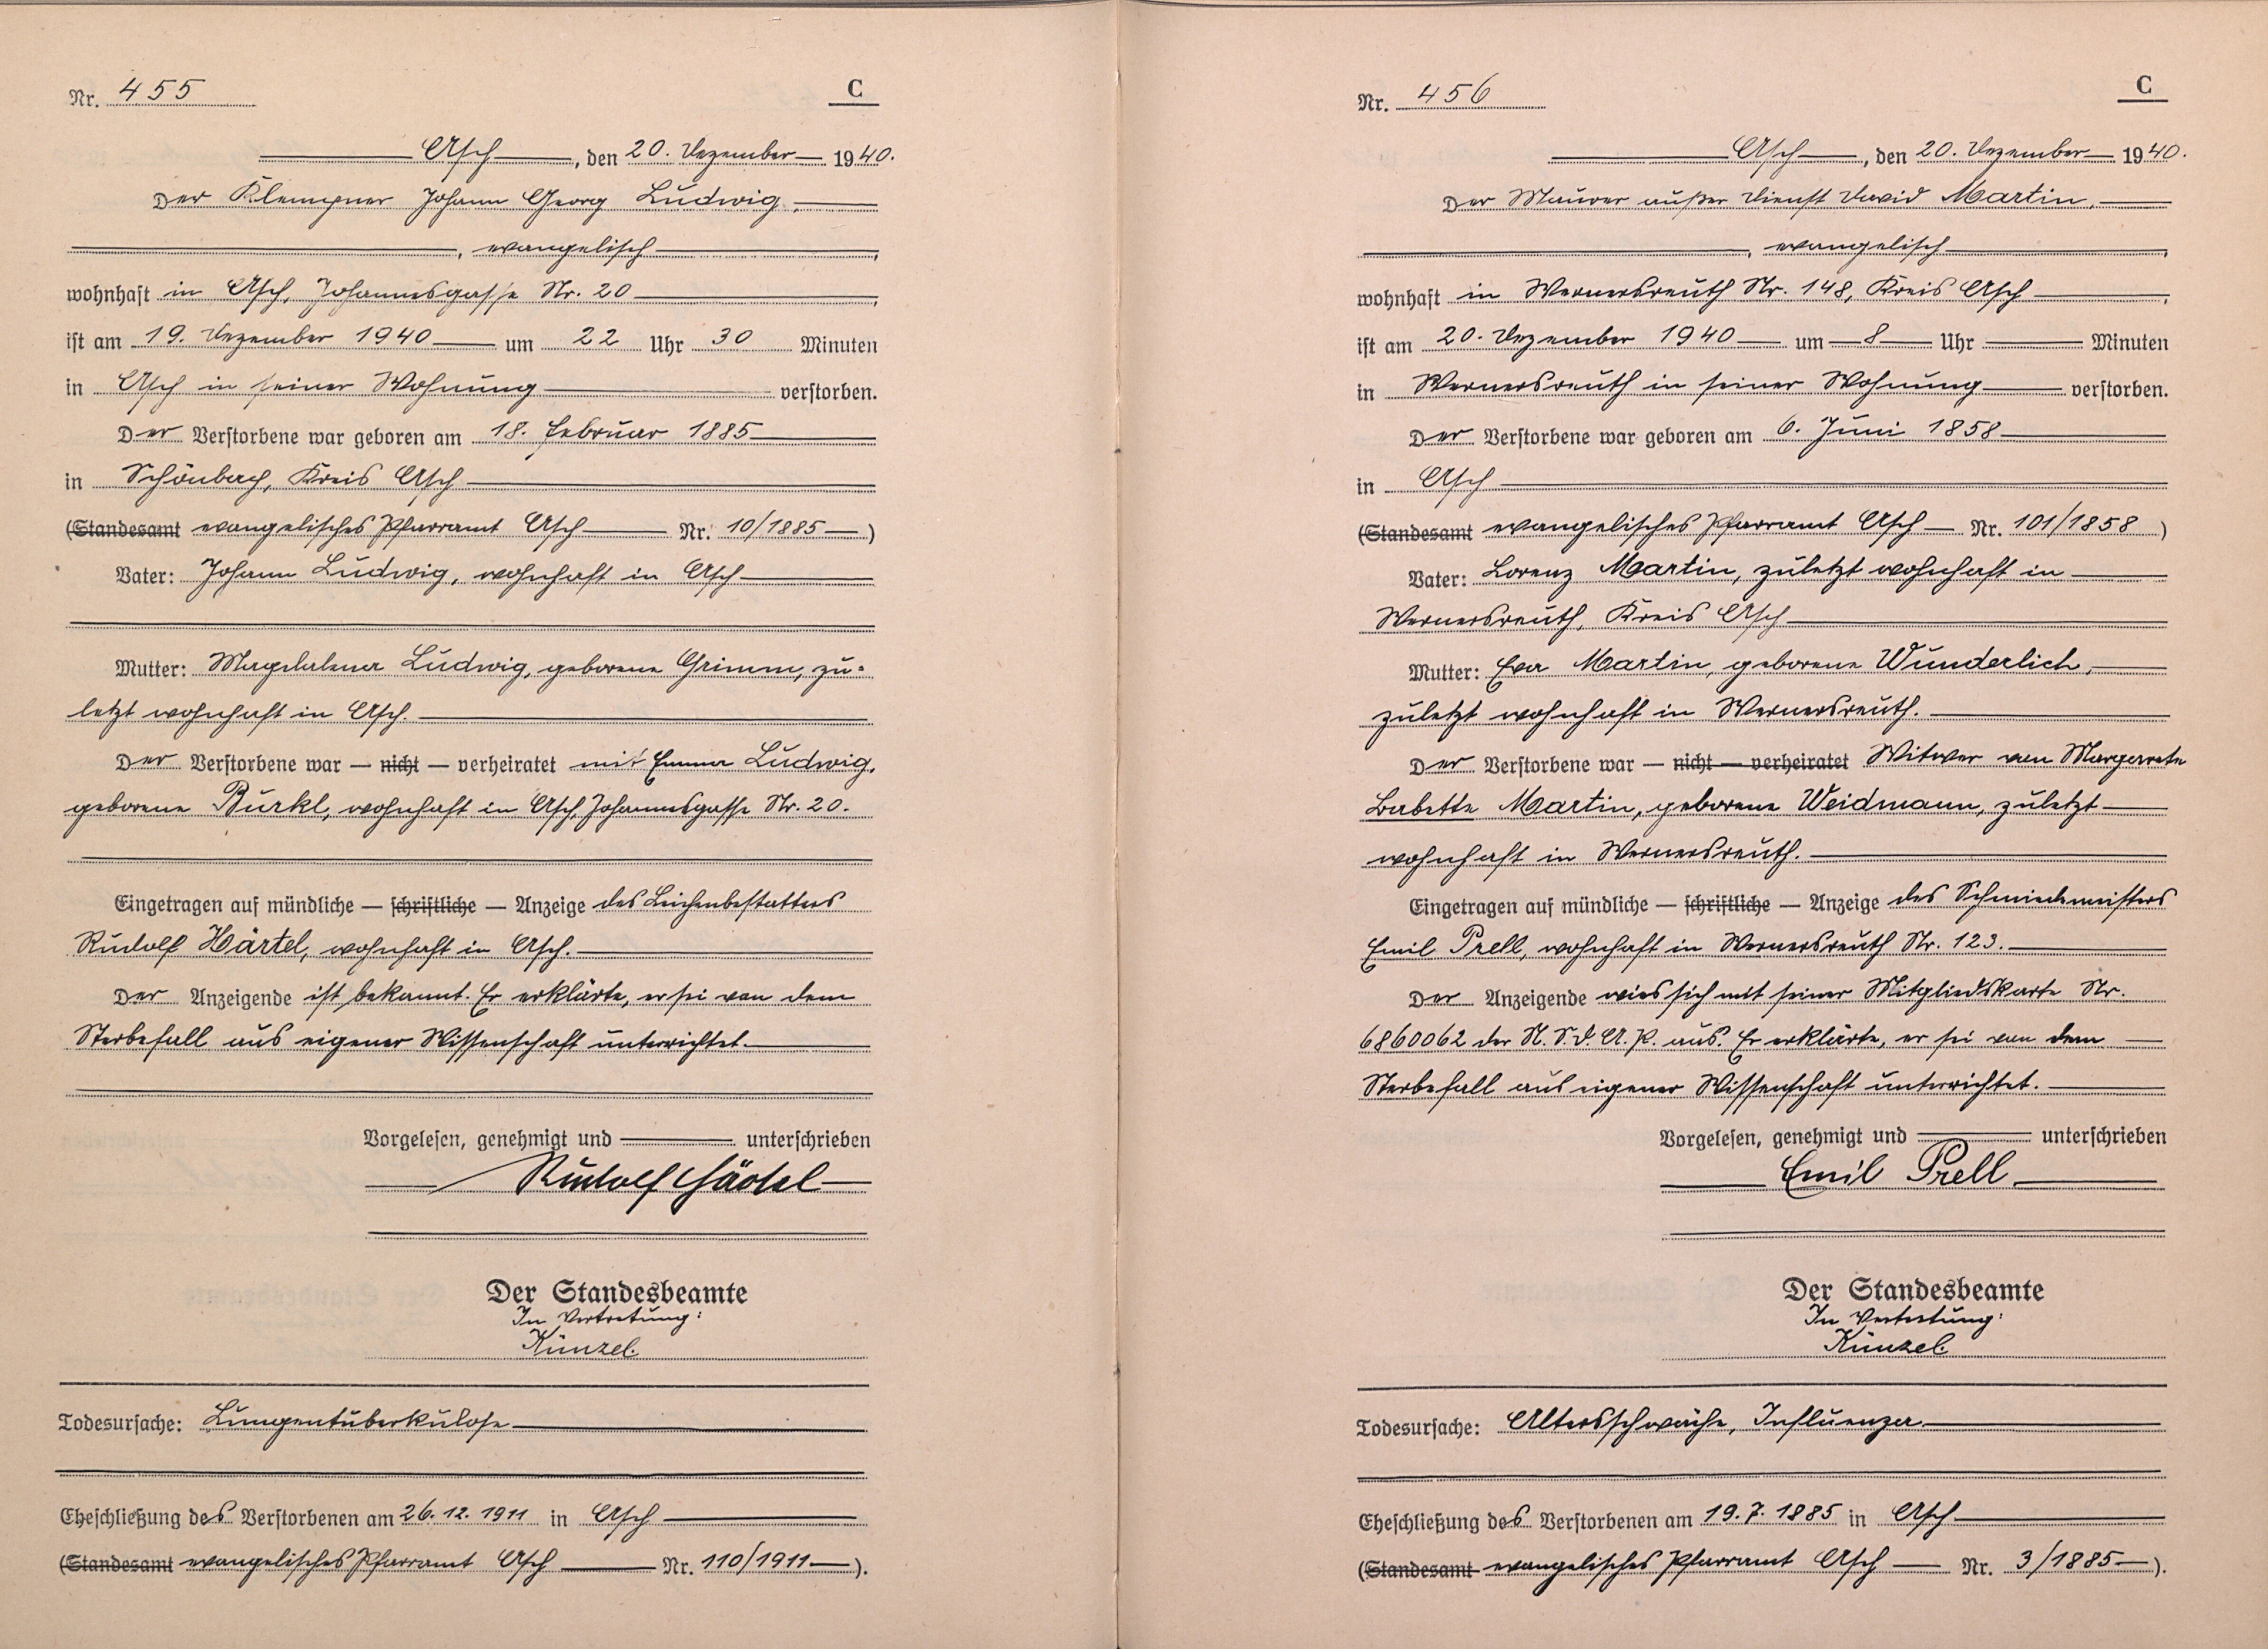 Nr. 455
C
Asch, den 20. Dezember 1940.
Der Klempner Johann Georg Ludwig,
, evangelisch,
wohnhaft in Asch, Johannesgasse Nr. 20,
ist am 19. Dezember 1940 um 22 Uhr 30 Minuten
in Asch in seiner Wohnung verstorben.
Der Verstorbene war geboren am 18. Februar 1885
in Schönbach, Kreis Asch
(Standesamt evangelisches Pfarramt Asch Nr. 10/1885)
Vater: Johann Ludwig, wohnhaft in Asch
Mutter: Magdalena Ludwig, geborene Grimm, zu-
letzt wohnhaft in Asch.
Der Verstorbene war — nicht — verheiratet mit Emma Ludwig,
geborene Burkl, wohnhaft in Asch, Johannesgasse Nr. 20.
Eingetragen auf mündliche — schriftliche — Anzeige des Leichenbestatters
Rudolf Härtel, wohnhaft in Asch.
Der Anzeigende ist bekannt. Er erklärte, er sei von dem
Sterbefall aus eigener Wissenschaft unterrichtet.
Vorgelesen, genehmigt und unterschrieben
Rudolf Härtel
Der Standesbeamte
In Vertretung:
Künzel.
Todesursache: Lungentuberkulose
Eheschließung des Verstorbenen am 26. 12. 1911 in Asch
(Standesamt evangelisches Pfarramt Asch Nr. 110/1911).
Nr. 456
C
Asch, den 20. Dezember 1940.
Der Maurer außer Dienst David Martin,
, evangelisch,
wohnhaft in Wernersreuth Nr. 148, Kreis Asch,
ist am 20. Dezember 1940 um 8 Uhr Minuten
in Wernersreuth in seiner Wohnung verstorben.
Der Verstorbene war geboren am 6. Juni 1858
in Asch
(Standesamt evangelisches Pfarramt Asch Nr. 101/1858)
Vater: Lorenz Martin, zuletzt wohnhaft in
Wernersreuth, Kreis Asch
Mutter: Eva Martin, geborene Wunderlich,
zuletzt wohnhaft in Wernersreuth.
Der Verstorbene war — nicht — verheiratet Witwer von Margarete
Babette Martin, geborene Weidmann, zuletzt
wohnhaft in Wernersreuth.
Eingetragen auf mündliche — schriftliche — Anzeige des Schmiedemeisters
Emil Prell, wohnhaft in Wernersreuth Nr. 123.
Der Anzeigende wies sich mit seiner Mitgliedskarte Nr.
6860062 der N.S.D.A.P. aus. Er erklärte, er sei von dem
Sterbefall aus eigener Wissenschaft unterrichtet.
Vorgelesen, genehmigt und unterschrieben
Emil Prell
Der Standesbeamte
In Vertretung:
Künzel.
Todesursache: Altersschwäche, Influenza
Eheschließung des Verstorbenen am 19. 7. 1885 in Asch
(Standesamt evangelisches Pfarramt Asch Nr. 3/1885).